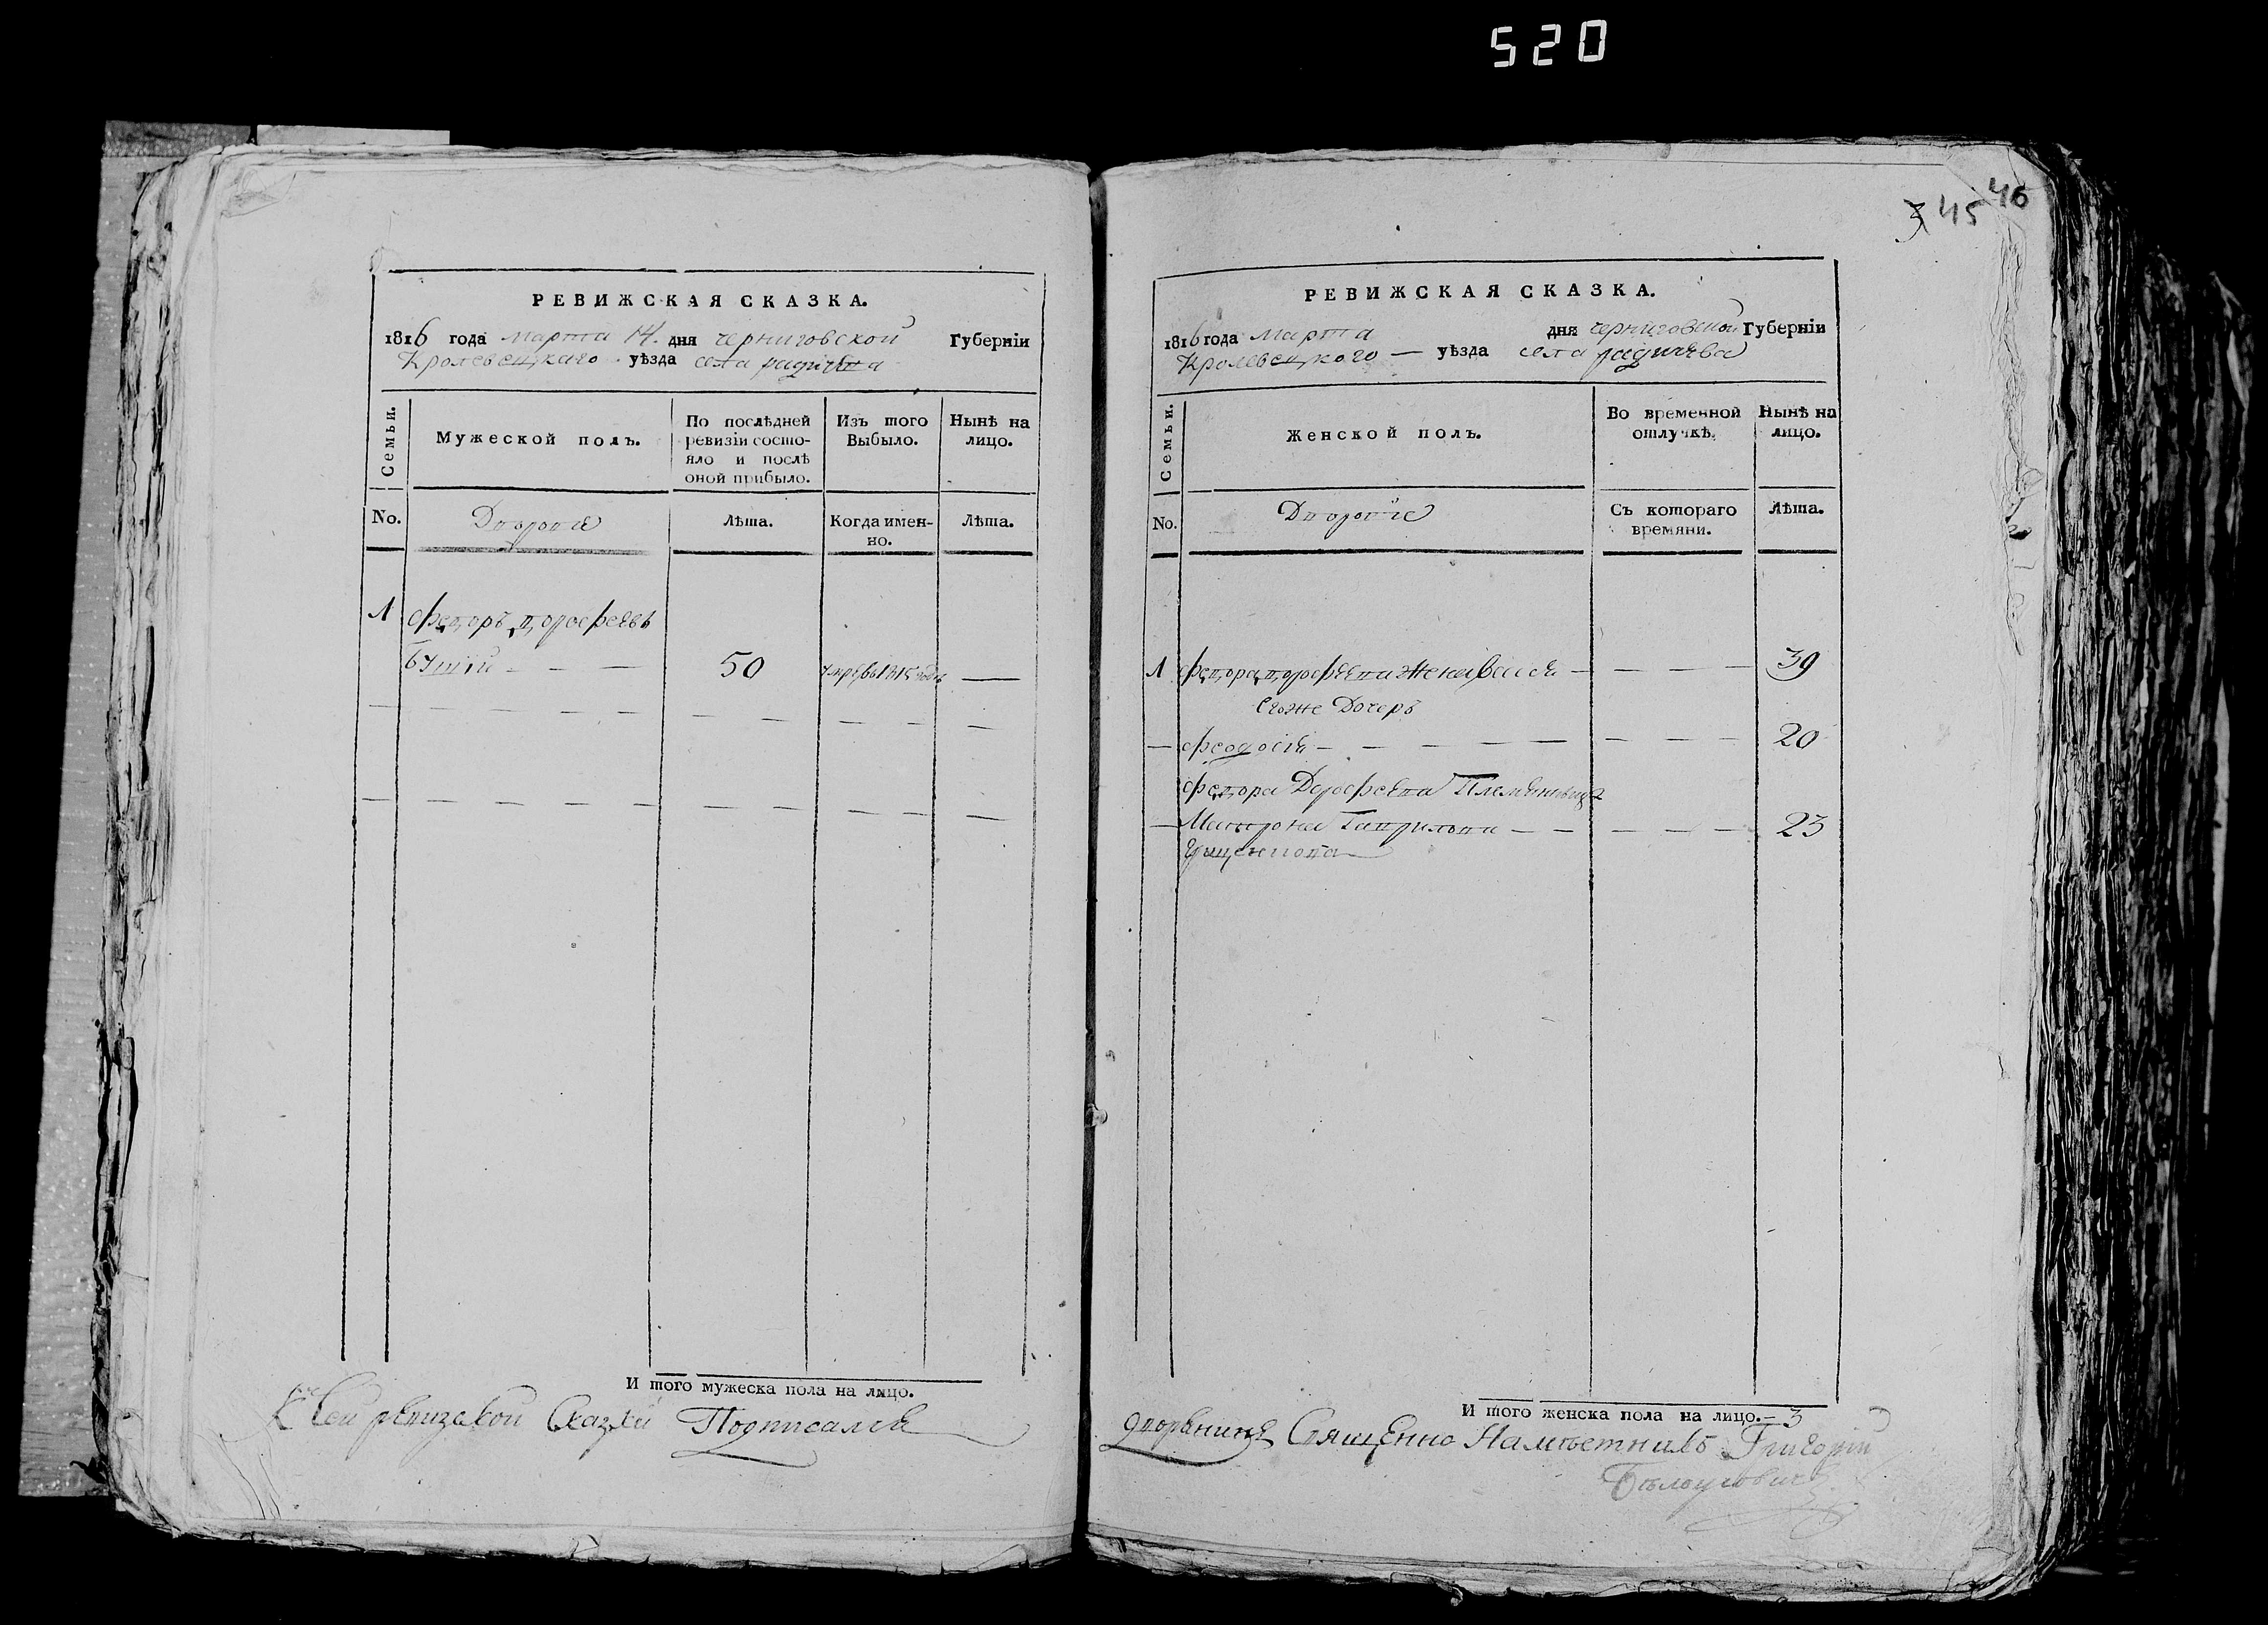 520
3 45 46
РЕВИЖСКАЯ СКАЗКА.
1816 года марта 14. дня черниговской Губерніи
Кролевецкаго уѣзда села радичева
Семьи.
Мужеской полъ.
По послѣдней ревизіи состо-
яло и послѣ
оной прибыло.
Изъ того
Выбыло.
Нынѣ на
лицо.
No.
Дворовіе
Лѣта.
Когда имен-
но.
Лѣта.
1 Федоръ дорофеевъ
50 умре въ 1815 годе —
И того мужеска пола на лицо.
К сей ревизской Сказки Подписался
РЕВИЖСКАЯ СКАЗКА.
1816 года марта дня черниговской Губерніи
Кролевецкого — уѣзда села радичева
Семьи.
Женской полъ.
Во временной
отлучкѣ.
Нынѣ на
лицо.
No.
Дворовіе
Съ котораго
времяни.
Лѣта.
1 федора дорофеева жена — 39
Егоже Дочерь
— феодосія — 20
федора Дорофеева Племянница
— Матрона Гаврилова — 23
И того женска пола на лицо. — 3
дворянинъ Священно Намѣстникъ Григорій